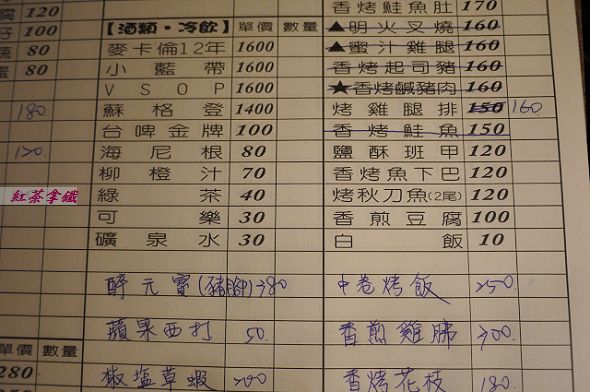 120
100
80
80
180
紅茶拿鐵
單價 數量
280
【酒類・冷飲】 單價 數量
麥卡倫12年 1600
小藍帶 1600
VSOP 1600
蘇格登 1400
台啤金牌 100
海尼根 80
柳橙汁 70
綠茶 40
可樂 30
礦泉水 30
醉元寶(豬腳) 280
蘋果西打 50
椒塩草蝦 200
香烤鮭魚肚 170
▲明火叉燒 160
▲蜜汁雞腿 160
香烤起司豬 160
★香烤鹹豬肉 160
烤雞腿排 150 160
香烤鮭魚 150
鹽酥班甲 120
香烤魚下巴 120
烤秋刀魚(2尾) 120
香煎豆腐 100
白飯 10
中卷烤飯 250
香煎雞脯 200
香烤花枝 180